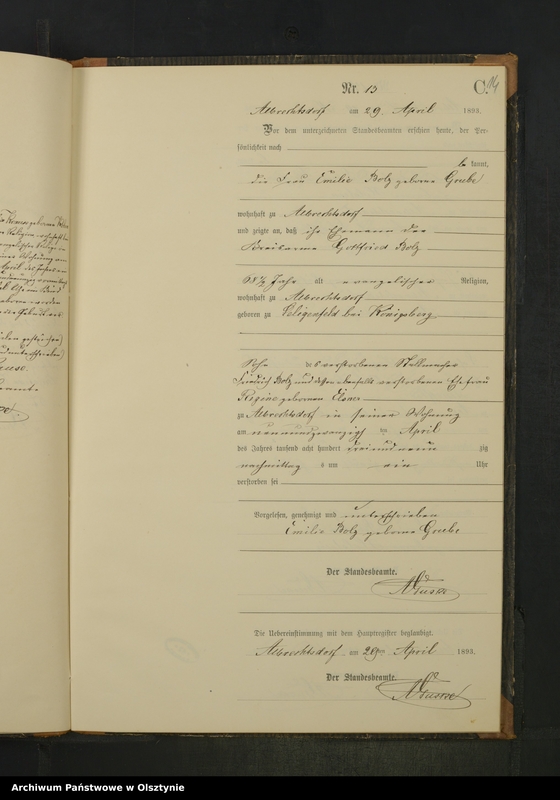 Nr. 13
C. 14
Albrechtsdorf am 29 April 1893.
Vor dem unterzeichneten Standesbeamten erschien heute, der Per-
sönlichkeit nach
be kannt,
die Frau Emilie Bolz geborne Grube
wohnhaft zu Albrechtsdorf
und zeigte an, daß ihr Ehemann der
Gottfried Bolz
68 ½ Jahr alt evangelischer Religion,
wohnhaft zu Albrechtsdorf
geboren zu Seligenfeld bei Königsberg
Sohn des verstorbenen Stellmacher
Friedrich Bolz und dessen ebenfalls verstorbenen Ehefrau
Regine gebornen Elsner
zu Albrechtsdorf in seiner Wohnung
am neunundzwanzigsten April
des Jahres tausend acht hundert drei und neun zig
nachmittag s um ein Uhr
verstorben sei
Vorgelesen, genehmigt und unterschrieben
Emilie Bolz geborne Grube
Der Standesbeamte.
Die Uebereinstimmung mit dem Hauptregister beglaubigt.
Albrechtsdorf am 29 April 1893.
Der Standesbeamte.
Archiwum Państwowe w Olsztynie